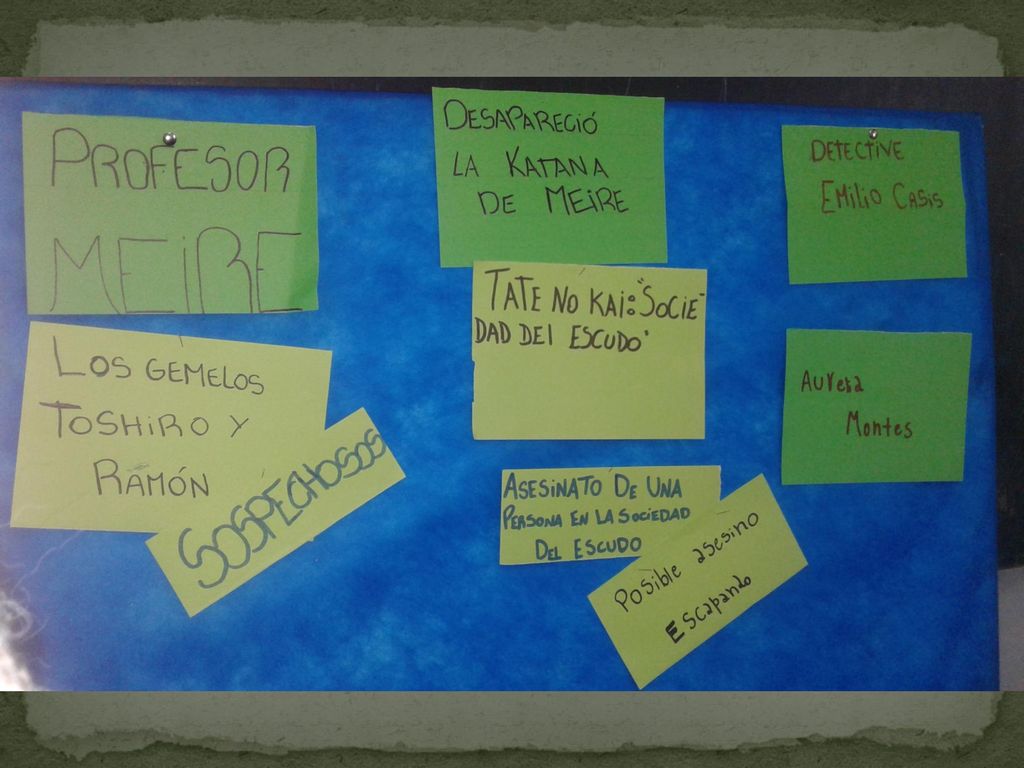 PROFESOR
MEIRE
DESAPARECIÓ
LA KATANA
DE MEIRE
DETECTIVE
EMILIO CASIS
LOS GEMELOS
TOSHIRO Y
RAMÓN
SOSPECHOSOS
TATE NO KAI: "SOCIE-
DAD DEL ESCUDO"
Aurora
Montes
ASESINATO DE UNA
PERSONA EN LA SOCIEDAD
DEL ESCUDO
Posible asesino
Escapando